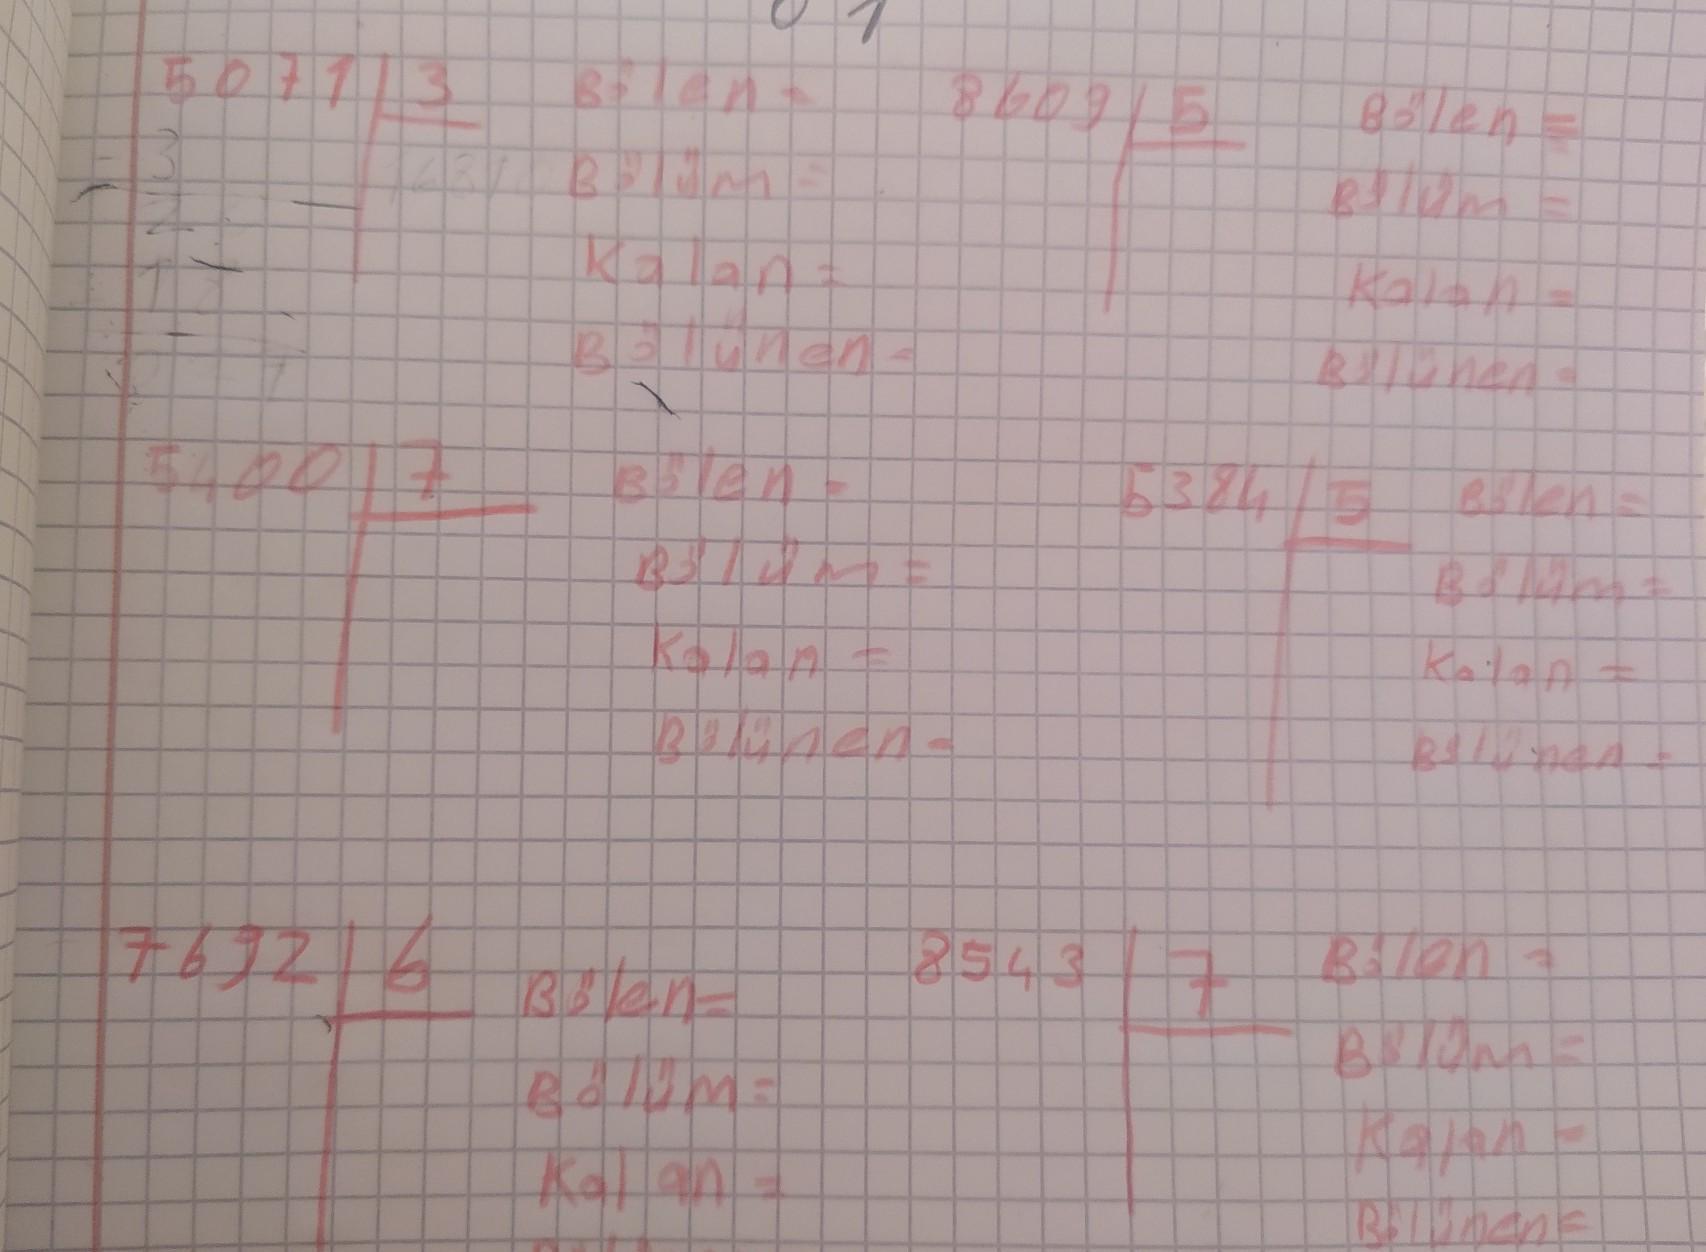 5071 3 Bölen =
Bölüm =
Kalan =
Bölünen =
8609 5 Bölen =
Bölüm =
Kalan =
Bölünen =
5400 7 Bölen =
Bölüm =
Kalan =
Bölünen =
5384 5 Bölen =
Bölüm =
Kalan =
Bölünen =
7692 6 Bölen =
Bölüm =
Kalan =
8543 7 Bölen =
Bölüm =
Kalan =
Bölünen =